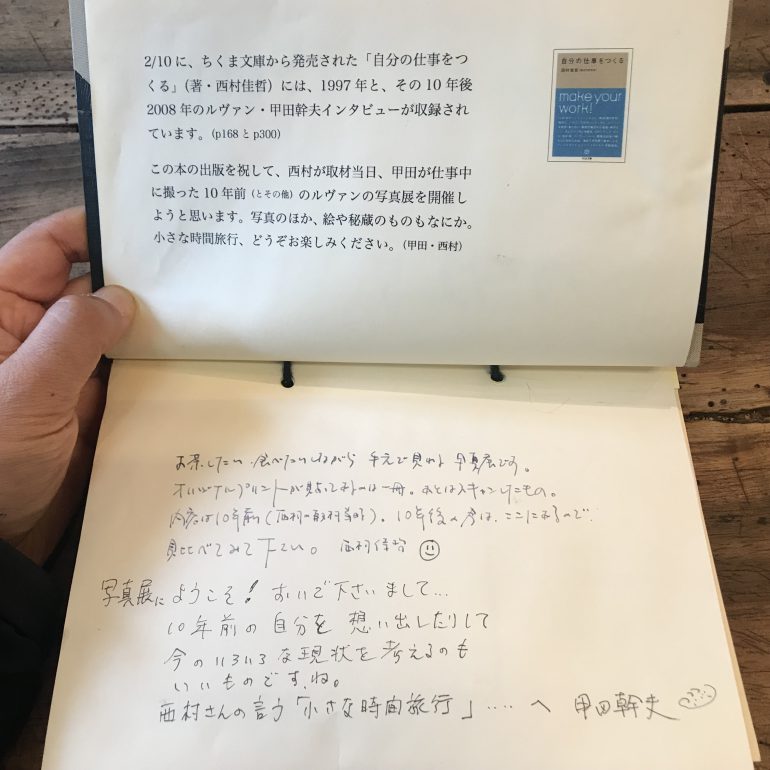 2/10に、ちくま文庫から発売された「自分の仕事をつ
くる」(著・西村佳哲)には、1997年と、その10年後
2008年のルヴァン・甲田幹夫インタビューが収録され
ています。(p168とp300)
この本の出版を祝して、西村が取材当日、甲田が仕事中
に撮った10年前(とその他)のルヴァンの写真展を開催し
ようと思います。写真のほか、絵や秘蔵のものもなにか。
小さな時間旅行、どうぞお楽しみください。(甲田・西村)
自分の仕事をつくる
make your
work!
お茶したり 食べたりしながら 手元で見れる 写真展です。
オリジナルプリントが貼ってあるのは一冊。あとはスキャンしたもの。
内容は10年前(西村の取材当時)。10年後の今は、ここにあるので、
見比べてみて下さい。 西村佳哲
写真展にようこそ! おいで下さいまして…
10年前の自分を 想い出したりして
今のいろいろな現状を考えるのも
いいものですね。
西村さんの言う「小さな時間旅行」‥‥へ 甲田幹夫